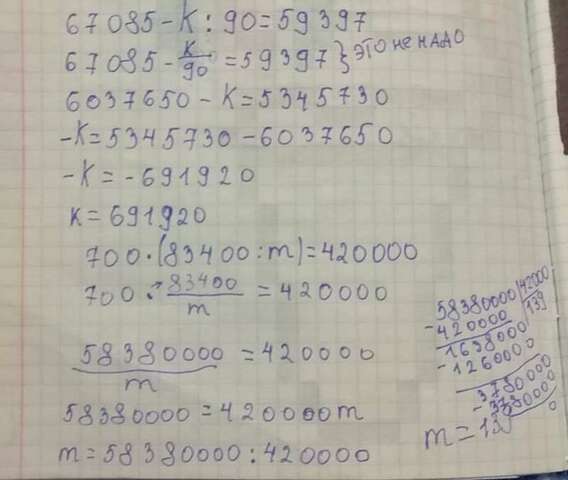 67085-К:90=59397
67085-К/90=59397 } ЭТО НЕ НАДО
6037650-К=5345730
-К=5345730-6037650
-К=-691920
К=691920
700·(83400:m)=420000
700·83400/m=420000
58380000/m=420000
58380000=420000m
m=58380000:420000
58380000|42000
-420000|139
1638000
-1260000
3780000
-3780000
0
m=139